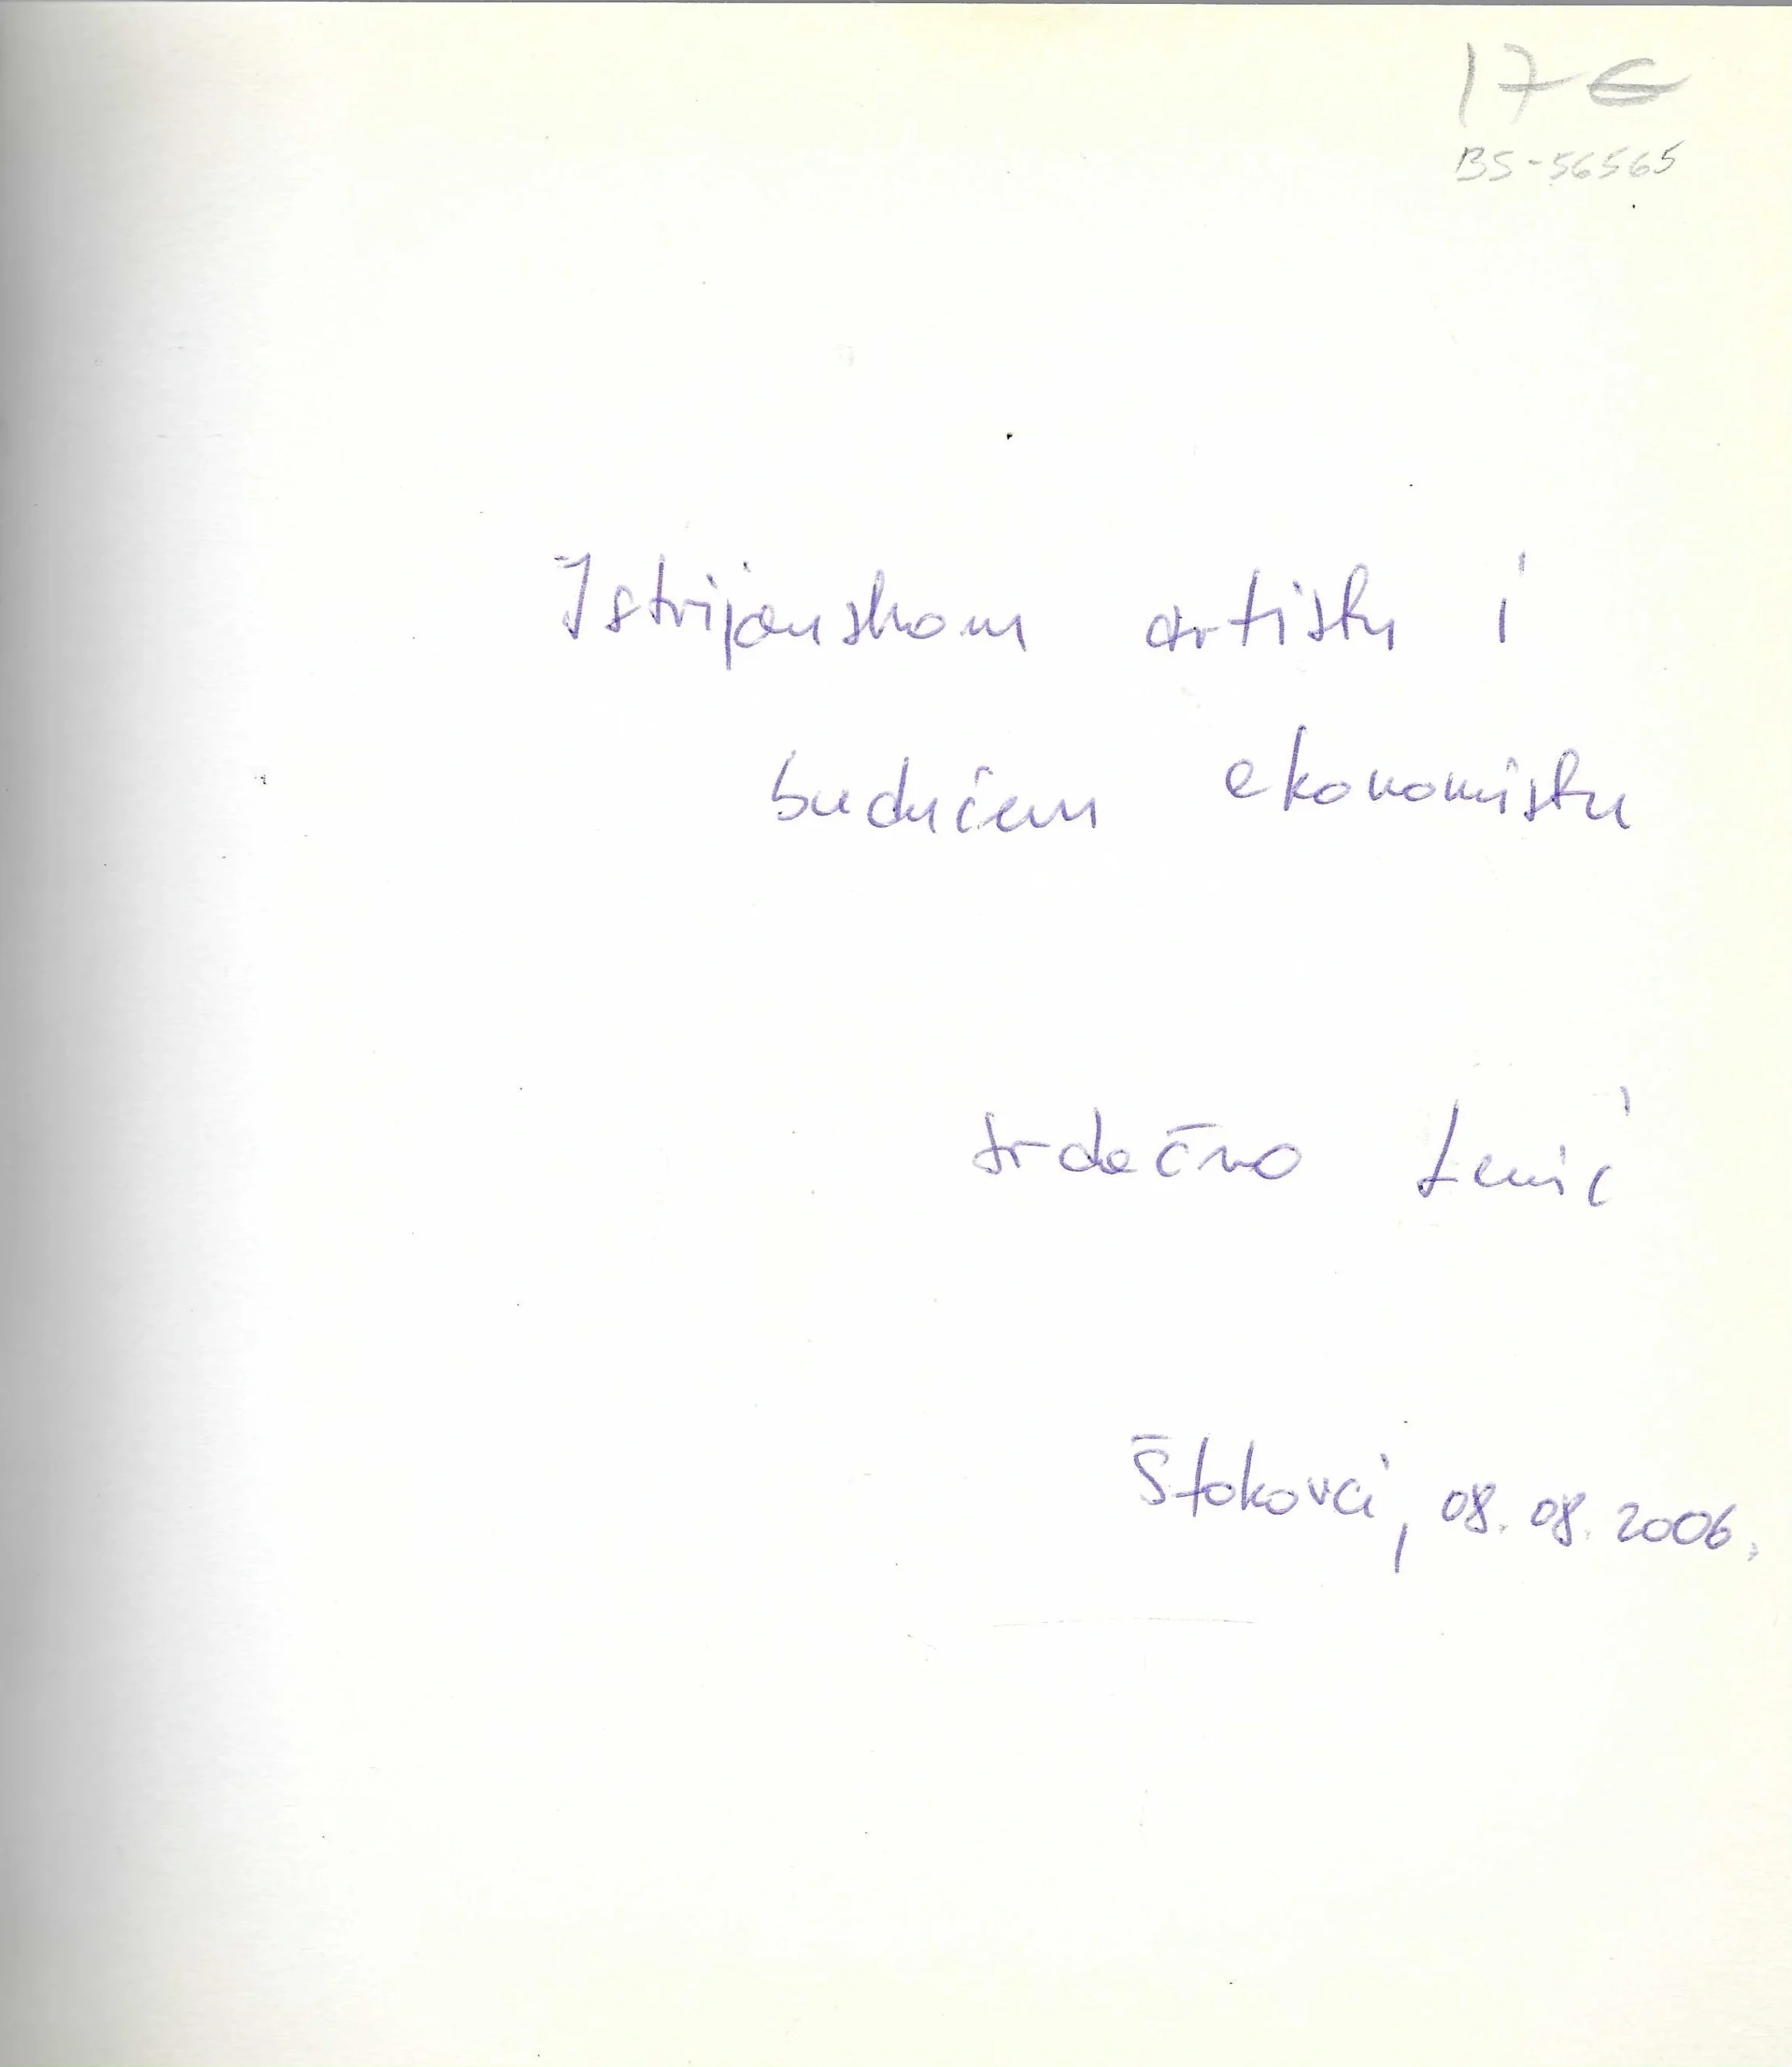 17 €
BS-56565
Istrijanskom artistu i
budućem ekonomistu
srdačno Lenić
Štokovci, 08. 08. 2006.